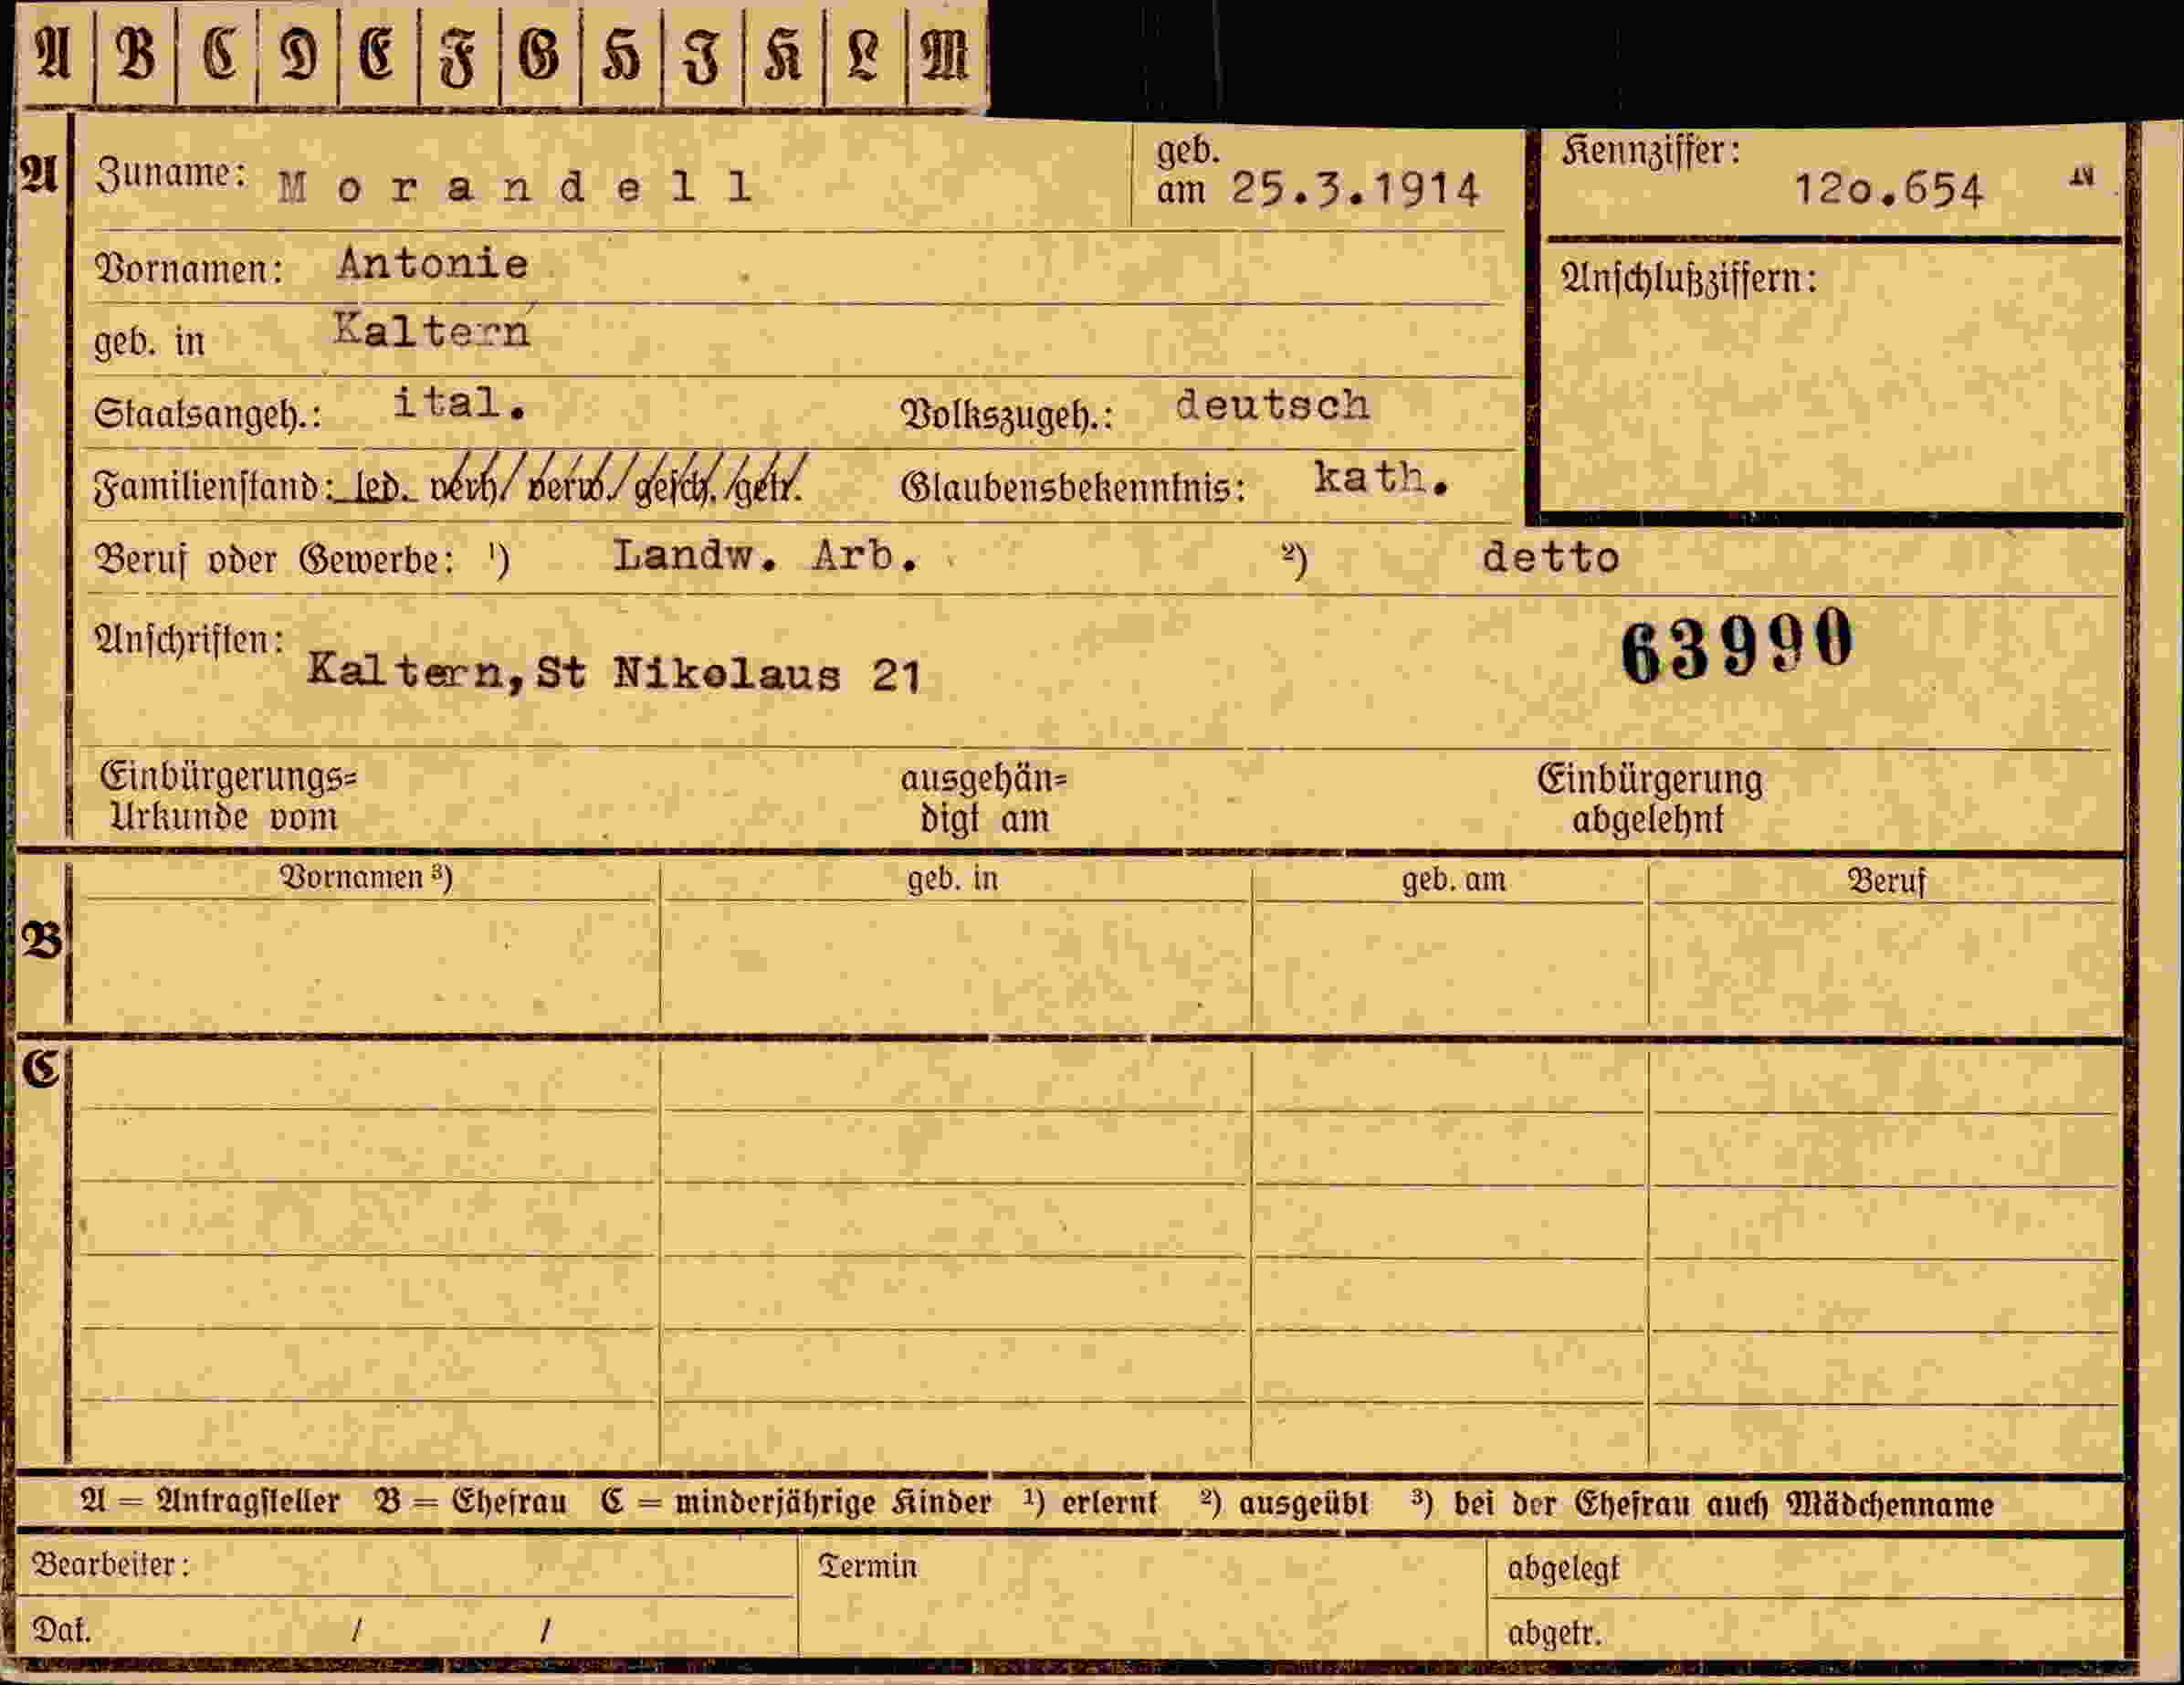 A B C D E F G H I K L M
A Zuname: Morandell geb. am 25.3.1914 Kennziffer: 12o.654
Vornamen: Antonie Anschlußziffern:
geb. in Kaltern
Staatsangeh.: ital. Volkszugeh.: deutsch
Familienstand: led. verh/ verw./ gesch./getr. Glaubensbekenntnis: kath.
Beruf oder Gewerbe: ¹) Landw. Arb. ²) detto
Anschriften: Kaltern, St Nikolaus 21 63990
Einbürgerungs= ausgehän= Einbürgerung
Urkunde vom digt am abgelehnt
B Vornamen ³) geb. in geb. am Beruf
C
A = Antragsteller B = Ehefrau C = minderjährige Kinder ¹) erlernt ²) ausgeübt ³) bei der Ehefrau auch Mädchenname
Bearbeiter: Termin abgelegt
Dat. / / abgetr.